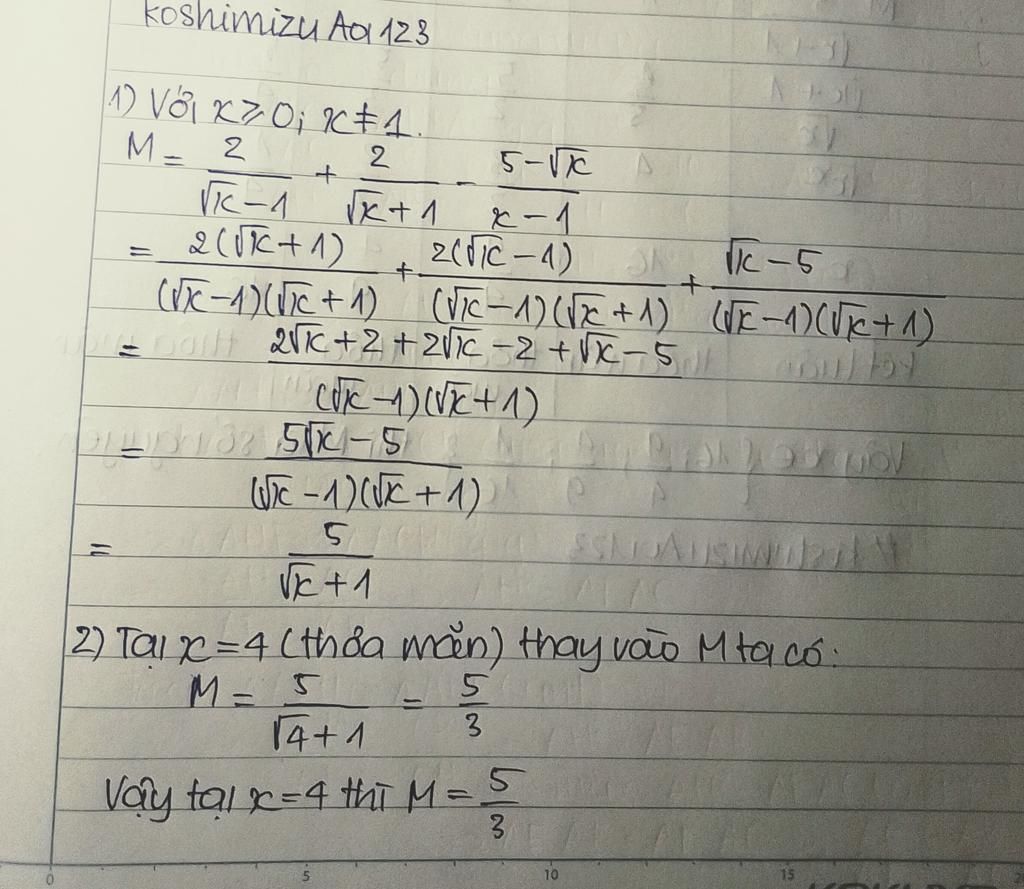 Koshimizu Aoi 123
1) Với x ≥ 0; x ≠ 1.
M = 2/(√x - 1) + 2/(√x + 1) - (5 - √x)/(x - 1)
= 2(√x + 1)/((√x - 1)(√x + 1)) + 2(√x - 1)/((√x - 1)(√x + 1)) + (√x - 5)/((√x - 1)(√x + 1))
= (2√x + 2 + 2√x - 2 + √x - 5)/((√x - 1)(√x + 1))
= (5√x - 5)/((√x - 1)(√x + 1))
= 5/(√x + 1)
2) Tại x = 4 (thỏa mãn) thay vào M ta có:
M = 5/(√4 + 1) = 5/3
Vậy tại x = 4 thì M = 5/3
0 5 10 15